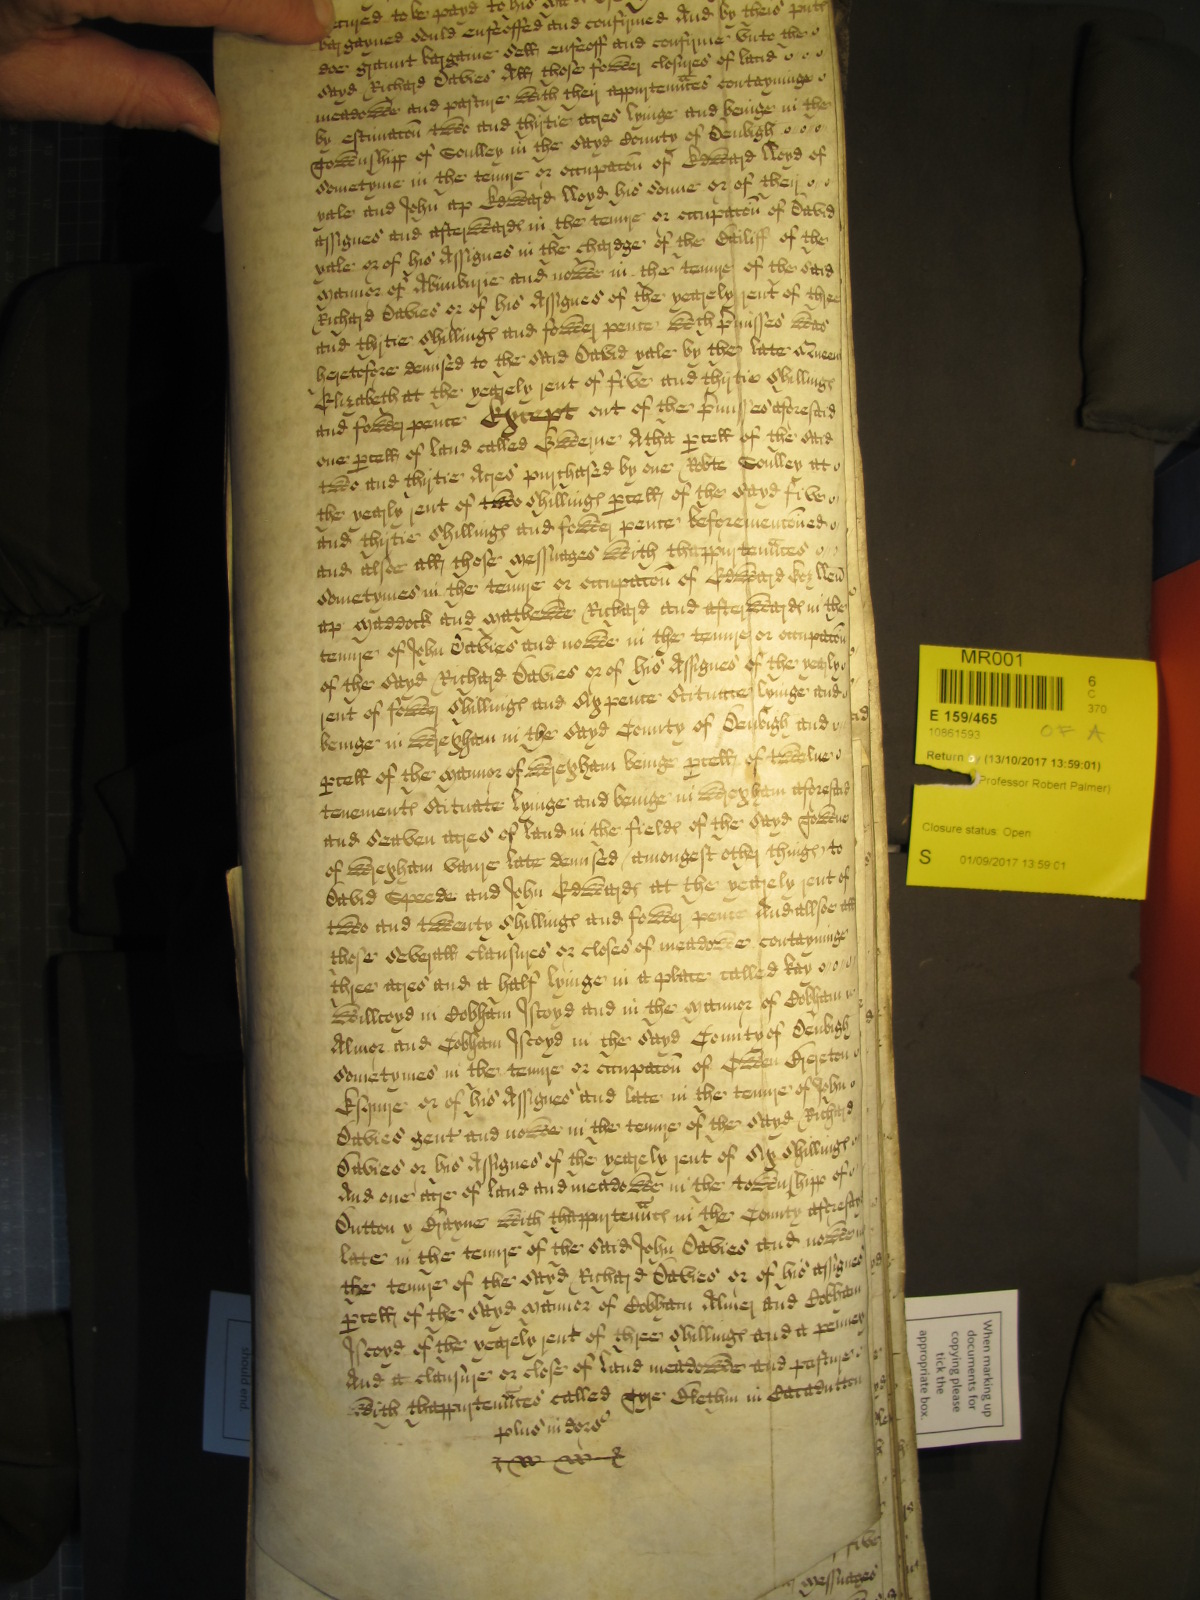 to be payd to his
bargayned sould enfeoffed and confirmed And by theis
doe graunt bargaine sell enfeoff and confirme unto the
sayd Richard Davies All those fower closures of land
meadowe and pasture with their appurtenñces contayninge
by estimacoñ two and thirtie acres lyinge and beinge in the
Towneshipp of Soulley in the sayd County of Denbigh
sometyme in the tenure or occupacoñ of Edward lloyd of
yale and John ap Edward lloyd his sonne or of their
assignes and afterwards in the tenure or occupacoñ of David
yale or of his Assignes in the chardge of the Bailiff of the
mannor of Abimburie and nowe in the tenure of the said
Richard Davies or of his Assignes of the yearely rent of three
and thirtie shillings and fower pence wch p̃misses was
heretofore demised to the said David yale by the late Queen
Elizabeth at the yearely rent of five and thirtie shillings
and fower pence Except out of the p̃misses aforesaid
one pcell of land called Gwerne Atha pcell of the said
two and thirtie Acres purchased by one Robte Soulley at
the yearly rent of two shillings pcell of the sayd five
and thirtie shillings and fower pence beforemencõned
and alsoe all those messuages with thappurtenñces
sometymes in the tenure or occupacoñ of Edward lleñ
ap Maddock and Mathewe Richard and afterwards in the
tenure of John Davies and nowe in the tenure or occupacoñ
of the sayd Richard Davies or of his Assignes of the yearly
rent of fower shillings and six pence scituate lyinge and
beinge in Wrexham in the sayd County of Denbigh and
pcell of the mannor of Wrexham beinge pcell of twelve
tenements scituate lyinge and beinge in Wrexham aforesaid
and seaven acres of land in the fields of the sayd Towne
of Wrexham late demised amongest other things to
David Speede and John Edwards at the yearely rent of
two and twenty shillings and fower pence And allsoe all
those severall clausures or closes of meadowe contayninge
three acres and a half lyinge in a place called kay
Willcoyd in Cobham Iscoyd and in the mannor of Cobham
Almor and Cobham Iscoyd in the sayd County of Denbigh
sometymes in the tenure or occupacoñ of Owen Brereton
Esquire or of his Assignes and late in the tenure of John
Davies gent and nowe in the tenure of the sayd Richard
Davies or his Assignes of the yearely rent of six shillings
And one acre of land and meadowe in the towneshipp of
Dutton y Brayne with thappurtenñcs in the County aforesayd
late in the tenure of the said John Davies and nowe in
the tenure of the sayd Richard Davies or of his assignes
pcell of the sayd mannor of Cobham Almer and Cobham
Iscoyd of the yearely rent of three shillings and a penney
And a clausure or close of land meadowe and pasture
with thappurtenñces called Tyr Bkethin in Cacadutton
plus in dors
messuages
MR001
6
C
370
E 159/465
10861593
OF A
Return by (13/10/2017 13:59:01)
Professor Robert Palmer)
Closure status: Open
S 01/09/2017 13:59:01
When marking up
documents for
copying please
tick the
appropriate box.
should end.